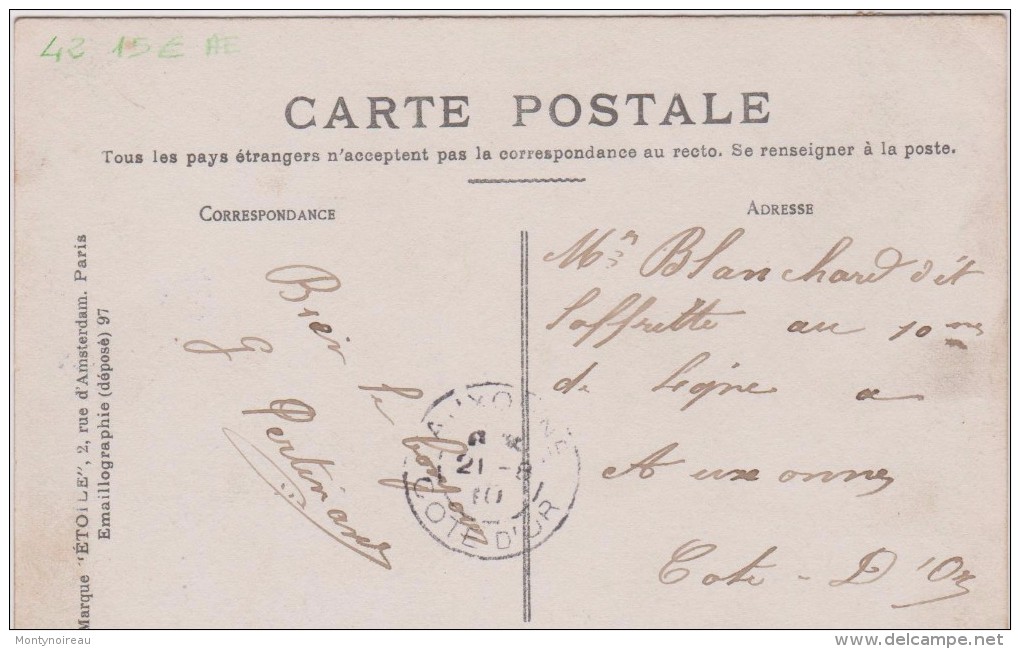 42 15€ AE
CARTE POSTALE
Tous les pays étrangers n'acceptent pas la correspondance au recto. Se renseigner à la poste.
CORRESPONDANCE
ADRESSE
Marque "ÉTOILE", 2, rue d'Amsterdam. Paris
Emaillographie (déposé) 97
Bien le bonjour
G
Mr Blanchard dit
Laffrette au 10mes
de Ligne a
Auxonnes
Cote - D'Or
AUXONNE
21 - 8
10
COTE D'OR
Montynoireau
www.delcampe.net